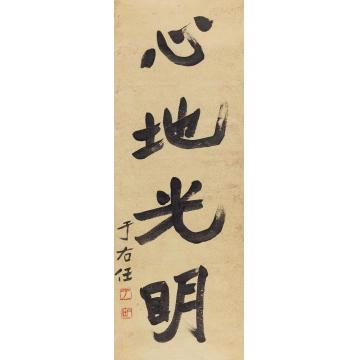 心地光明
于右任